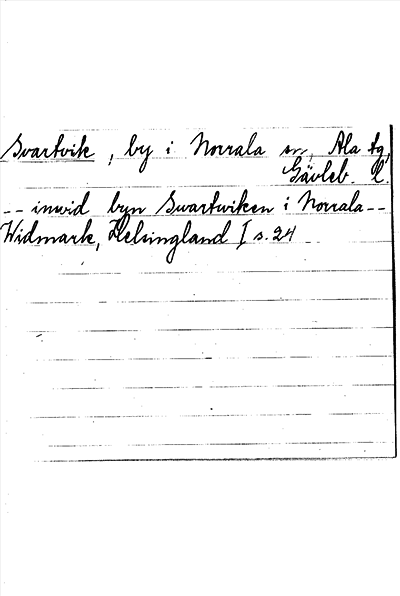 Svartvik, by i Norrala sn, Ala tg,
Gävleb. l.
-- inwid byn Swartwiken i Norrala --
Widmark, Helsingland I s. 24